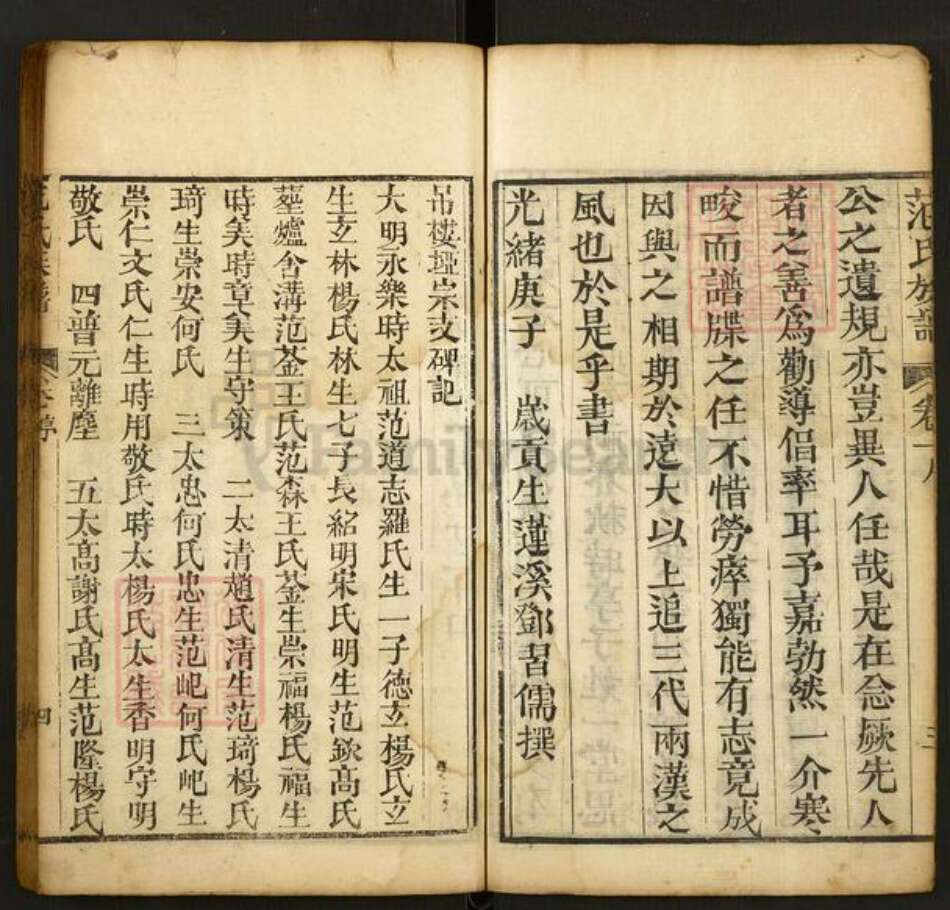 范氏族譜 卷一
公之遺規亦豈異人任哉是在念厥先人
者之善爲勸導倡率耳予嘉勃然一介寒
畯而譜牒之任不惜勞瘁獨能有志竟成
因與之相期於遠大以上追三代兩漢之
風也於是乎書
光緒庚子 歲貢生蓮溪鄧習儒撰
吊樓埡宗支碑記
大明永樂時太祖范道志羅氏生一子德玄楊氏玄
生玄林楊氏林生七子長紹明宋氏明生范欽高氏
塟爐舍溝范荃王氏范森王氏荃生崇福楊氏福生
時矣時章矣生守策 二太清趙氏清生范琦楊氏
琦生崇安何氏 三太忠何氏忠生范屺何氏屺生
崇仁文氏仁生時用敬氏時太楊氏太生香明守明
敬氏 四普元離塵 五太高謝氏高生范隆楊氏
四